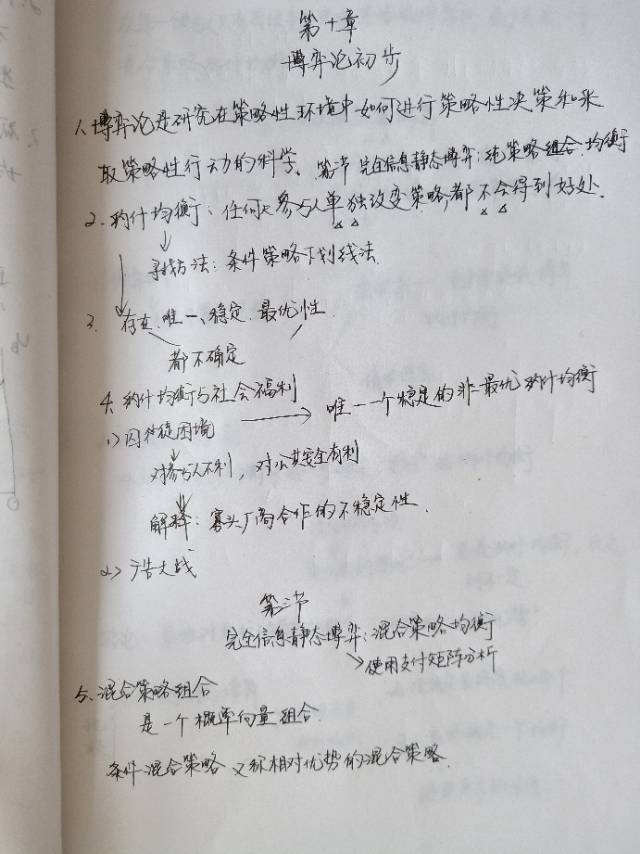 第十章
博弈论初步
1、博弈论是研究在策略性环境中如何进行策略性决策和采
取策略性行动的科学、第一节 完全信息静态博弈:纯策略组合均衡
2、纳什均衡、任何参与人单独改变策略,都不会得到好处.
寻找方法:条件策略下划线法.
3、存在.唯一、稳定.最优性.
都不确定
4、纳什均衡与社会福利
1>囚徒困境 唯一个稳定的非最优纳什均衡
对参与人不利,对公共安全有利
解释:寡头厂商合作的不稳定性.
2>广告大战
第二节
完全信息静态博弈:混合策略均衡
使用支付矩阵分析
5、混合策略组合
是一个概率向量组合.
条件混合策略 又称相对优势的混合策略.